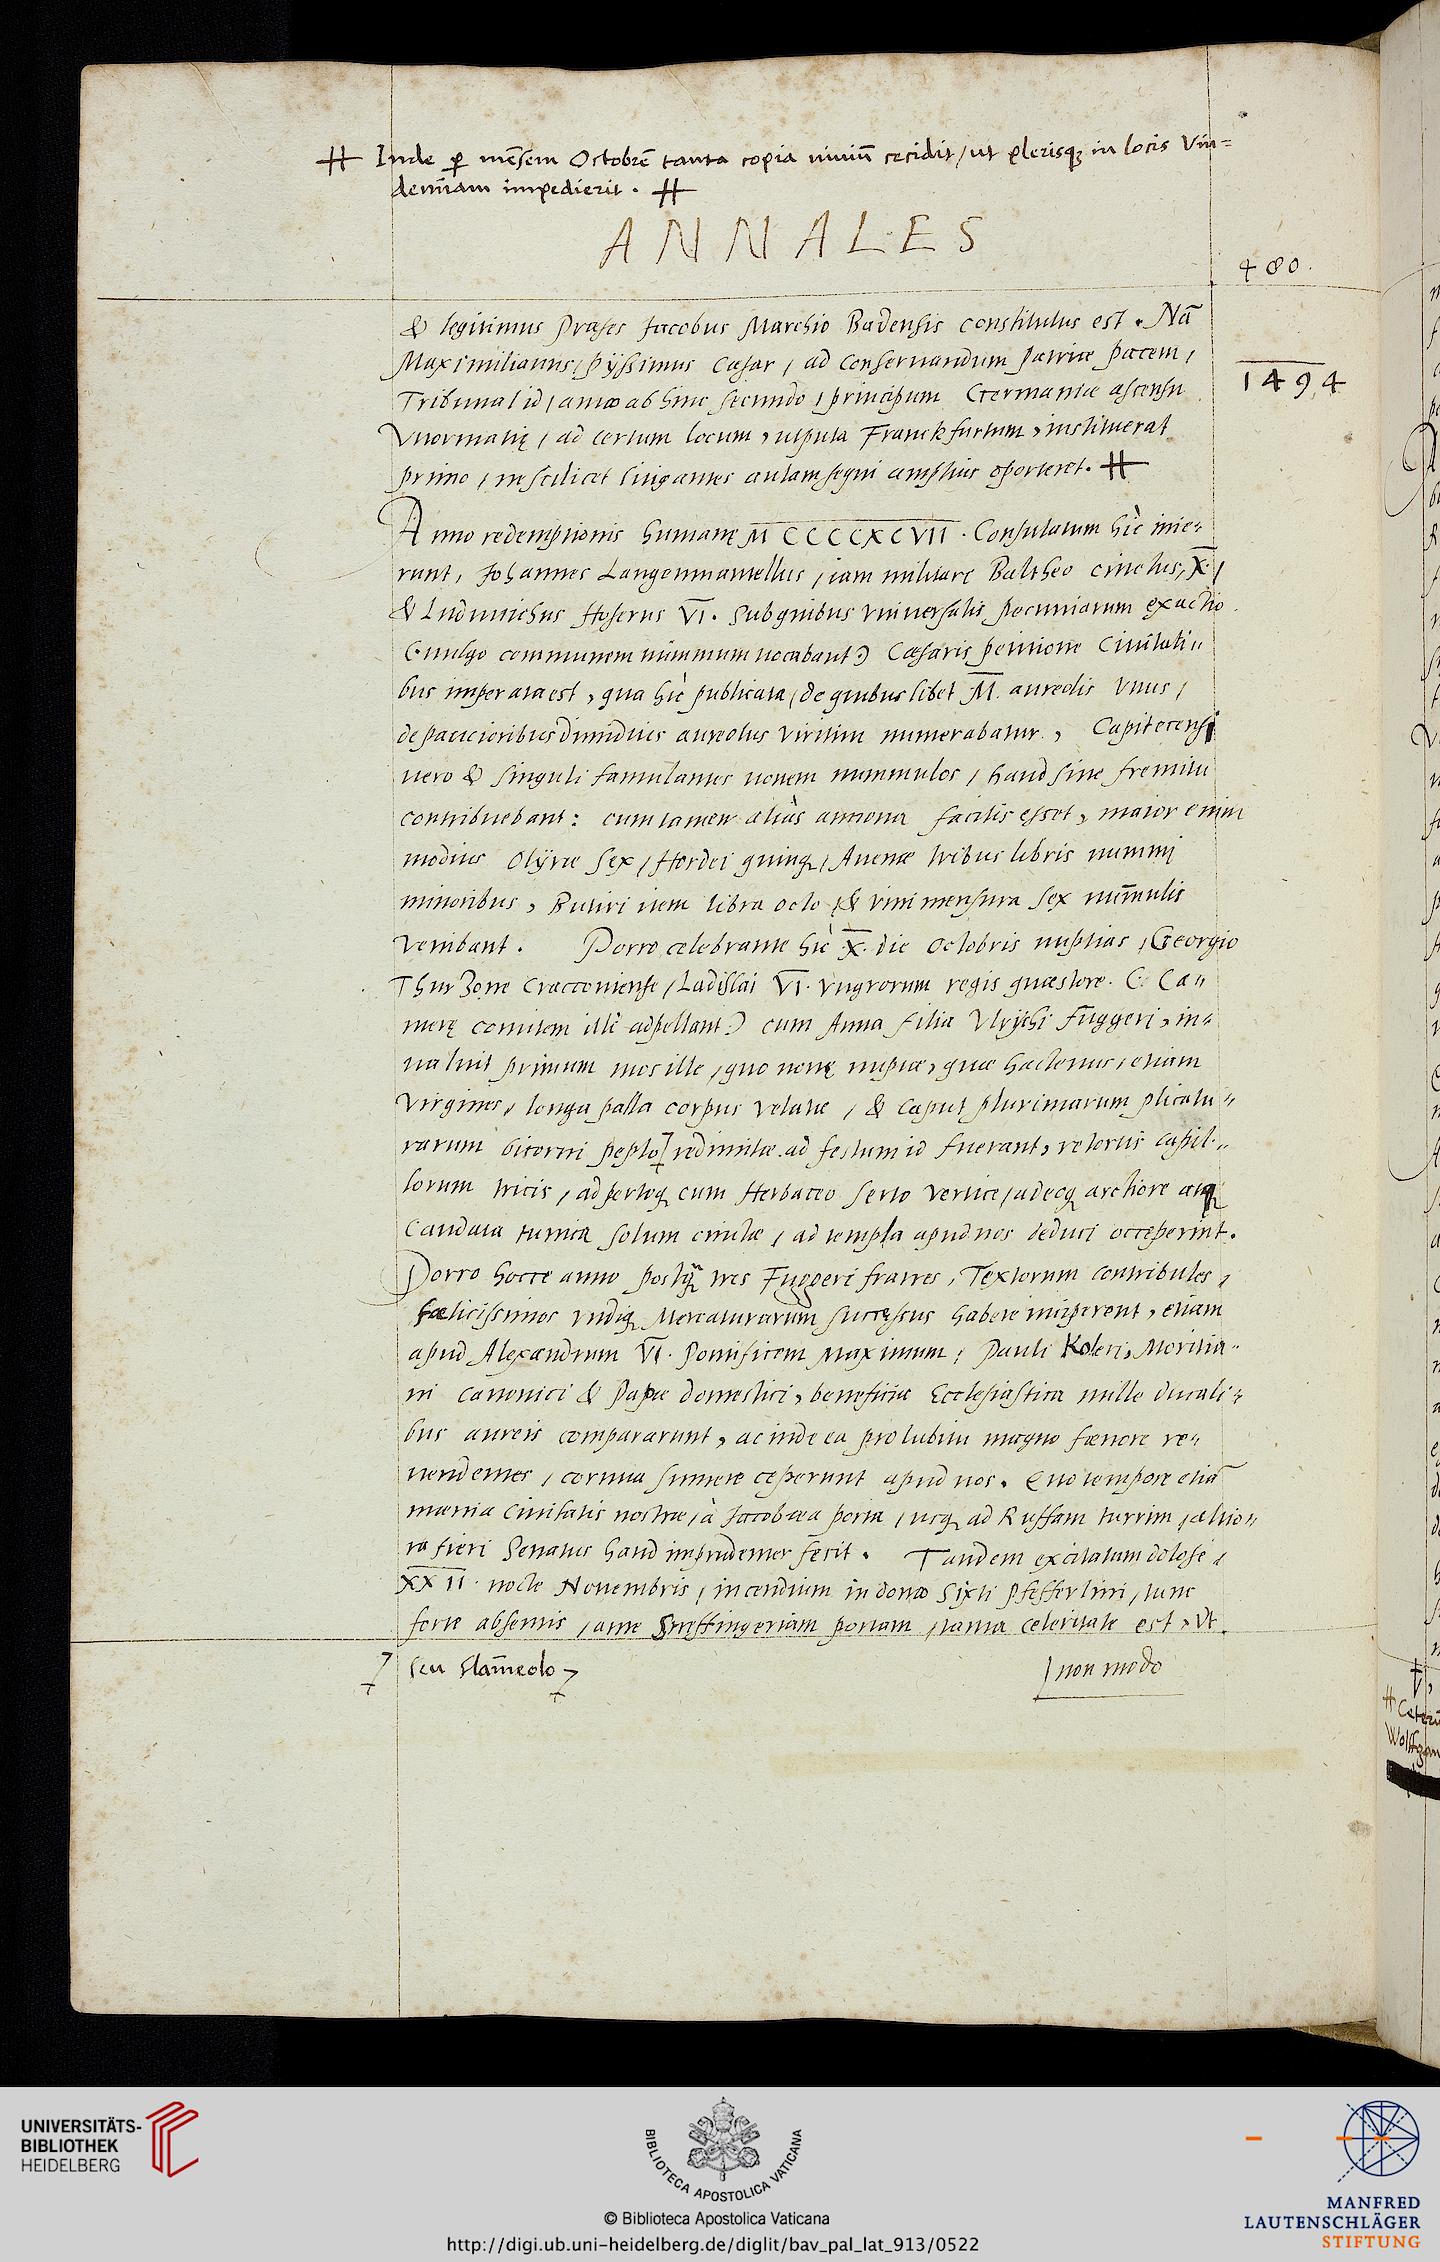 H Inde ꝑ mēsem Octobrē tanta copia niuiū cecidit / ut plerisqꝫ in locis Vin=
demiam impedierit . H
ANNALES
480.
& legitimus Præses Jacobus Marchio Badensis constitutus est . Nā
Maximilianus / pijssimus Cæsar / ad conseruandum patriæ pacem /
1494
Tribunal id / anno abhinc secundo / principum Germaniæ ascensu
Vuormatię / ad certum locum , utputa Franckfurtum , instituerat
primo / ne scilicet litigantes aulam sequi amplius oporteret . H
Anno redemptionis humanę MCCCCXCVII . Consulatum hîc inie-
runt , Johannes Langenmantellus / iam militare Baltheo cinctus , X . /
& Luduuichus Hoserus VI . Sub quibus vniuersalis pecuniarum exactio
( uulgo communem nummum uocabant ) Cæsaris petitione Ciuitati=
bus imperata est , qua hîc publicata / de quibuslibet M . aureolis vnus /
de paucioribus dimidius aureolus viritim numerabatur , Capitecensi
uero & singuli famulantes nouem nummulos / haud sine fremitu
contribuebant : cum tamen aliàs annona facilis esset , maior enim
modius Olyræ sex / Hordei quinqꝫ / Auenæ tribus libris nummi
minoribus , Butiri item libra octo / & vini mensura sex num̄ulis
venibant . Porro celebrante hîc X . die Octobris nuptias / Georgio
Thurzone Cracouiense / Ladislai VI . vngrorum regis quæstore . ( Ca=
merę comitem illi adpellant ) cum Anna filia Vlrychi Fuggeri , in=
ualuit primum mos ille / quo nouę nuptæ , quæ hactenus / etiam
virgines , longa palla corpus velatæ , & caput plurimarum plicatu=
rarum bicorni peplo redimitæ ad festum id fuerant , retortis capil=
lorum tricis / adpertoqꝫ cum Herbaceo serto vertice / adeoqꝫ arctiore atqꝫ
caudata tunica solum cinctæ / ad templa apud nos deduci occeperint .
Porro hocce anno postqꝫ tres Fuggeri fratres , Textorum contribules ,
fœlicissimos vndiqꝫ Mercaturarum successus habere inciperent , etiam
apud Alexandrum VI . Pontificem Maximum / Pauli Koleri , Moritia=
ni canonici & Papæ domestici , beneficia Ecclesiastica mille ducati=
bus aureis compararunt , ac inde ea pro lubitu magno fœnore re=
uendentes / cornua sumere ceperunt apud nos . Quo tempore etiā
mœnia Ciuitatis nostræ / à Jacobæa porta / usqꝫ ad Ruffam turrim / altio=
ra fieri Senatus haud imprudenter fecit . Tandem excitatum dolose /
XXII . nocte Nouembris / incendium in domo Sixti Pfefferlini / tunc
forte absentis / ante Streffingeriam portam / tanta celeritate est , vt
seu flam̄eolo
non modo
UNIVERSITÄTS-
BIBLIOTHEK
HEIDELBERG
BIBLIOTECA APOSTOLICA VATICANA
© Biblioteca Apostolica Vaticana
http://digi.ub.uni-heidelberg.de/diglit/bav_pal_lat_913/0522
MANFRED
LAUTENSCHLÄGER
STIFTUNG